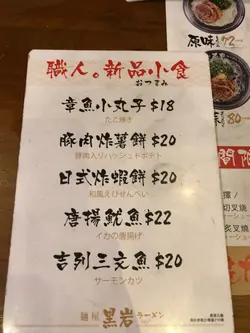 職人。新品小食
おつまみ
章魚小丸子 $18
たこ焼き
豚肉炸薯餅 $20
豚肉入りハッシュドポテト
日式炸蝦餅 $20
和風えびせんべい
唐揚魷魚 $22
イカの唐揚げ
吉列三文魚 $20
サーモンカツ
麺屋 黒岩 ラーメン
原味 72
間限